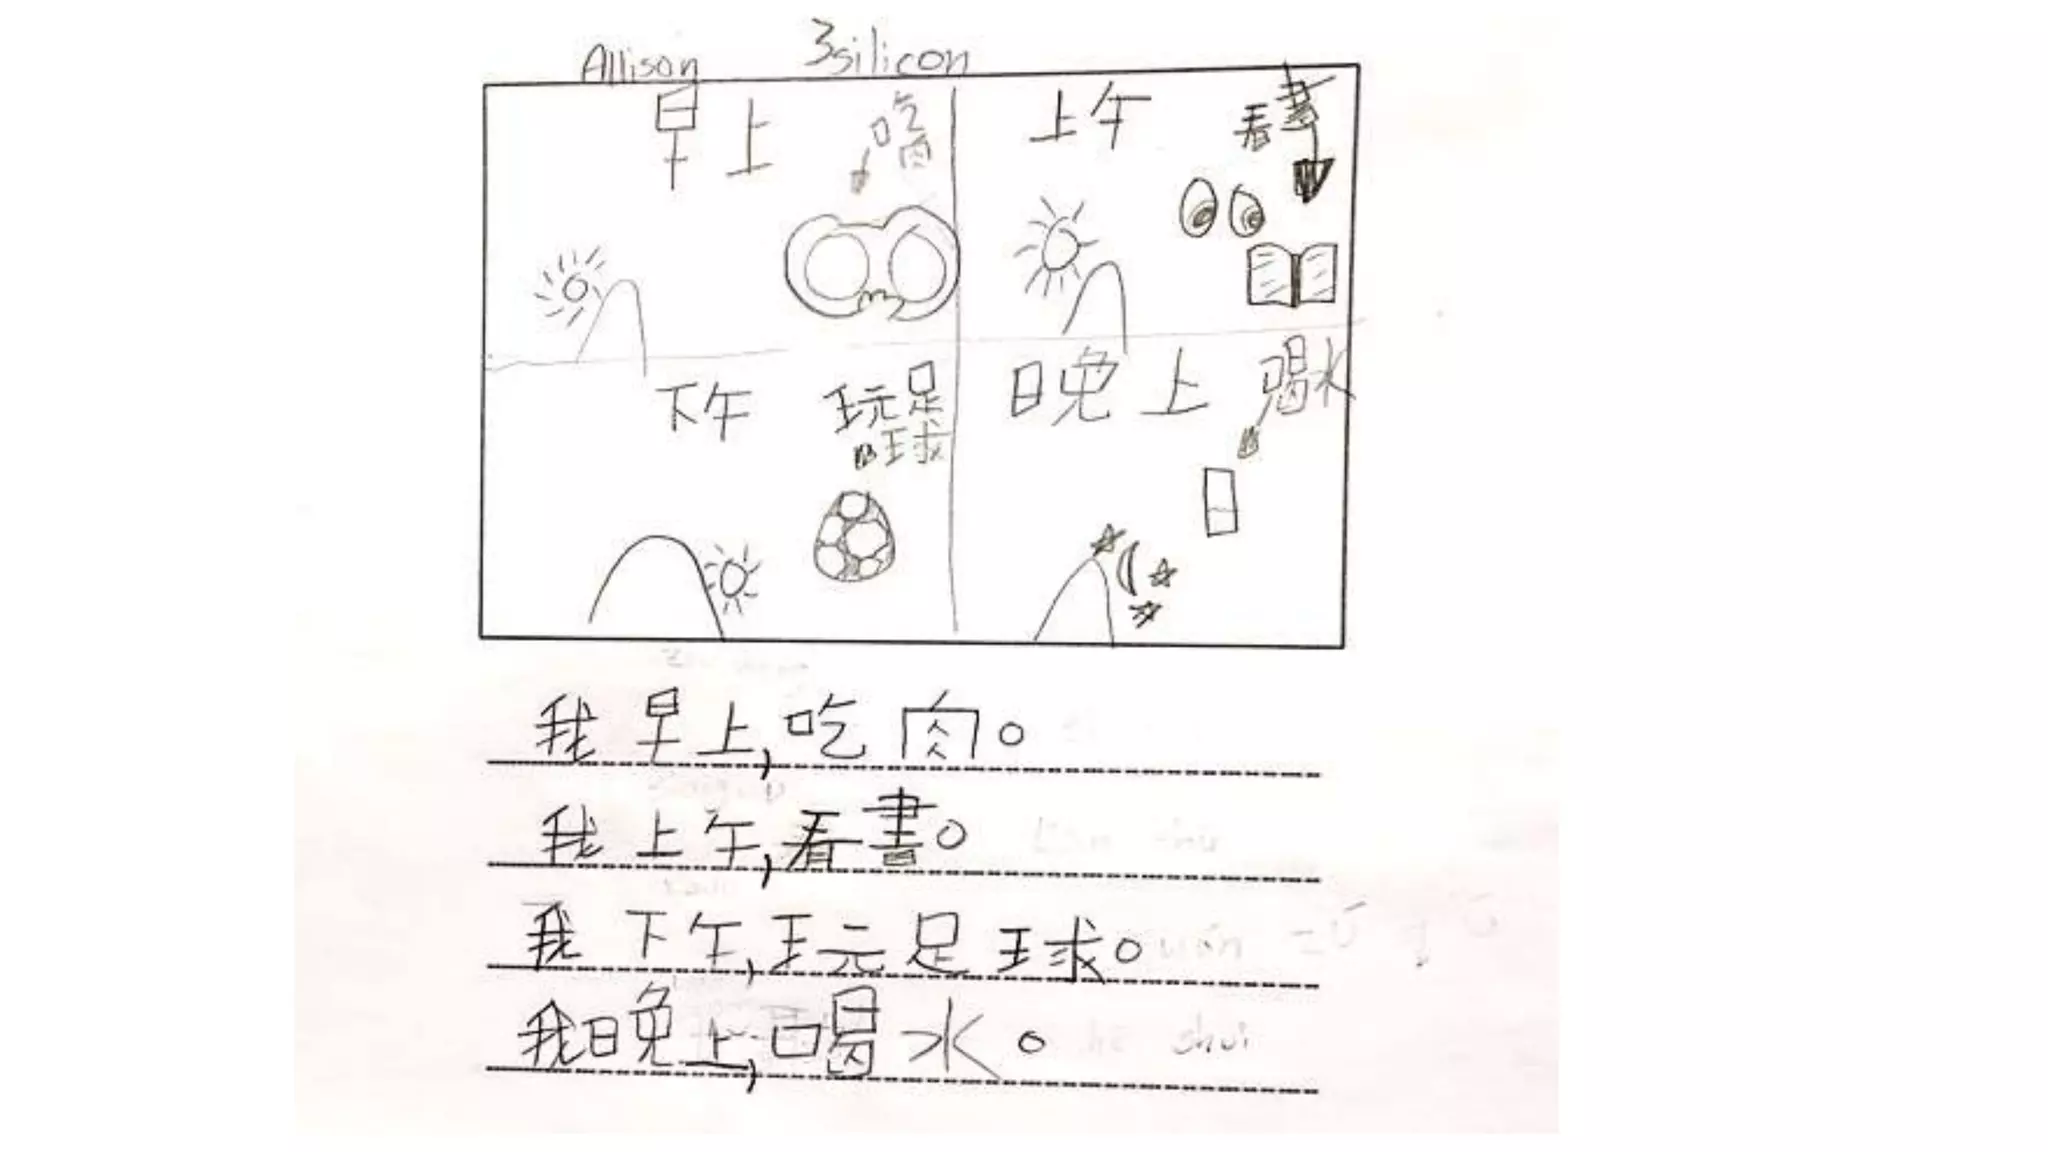 Allison 3silicon
早上 吃
肉
上午 看書
下午 玩足
球
晚上 喝水
我早上,吃肉。
我上午,看書。
我下午,玩足球。
我晚上,喝水。
he shui